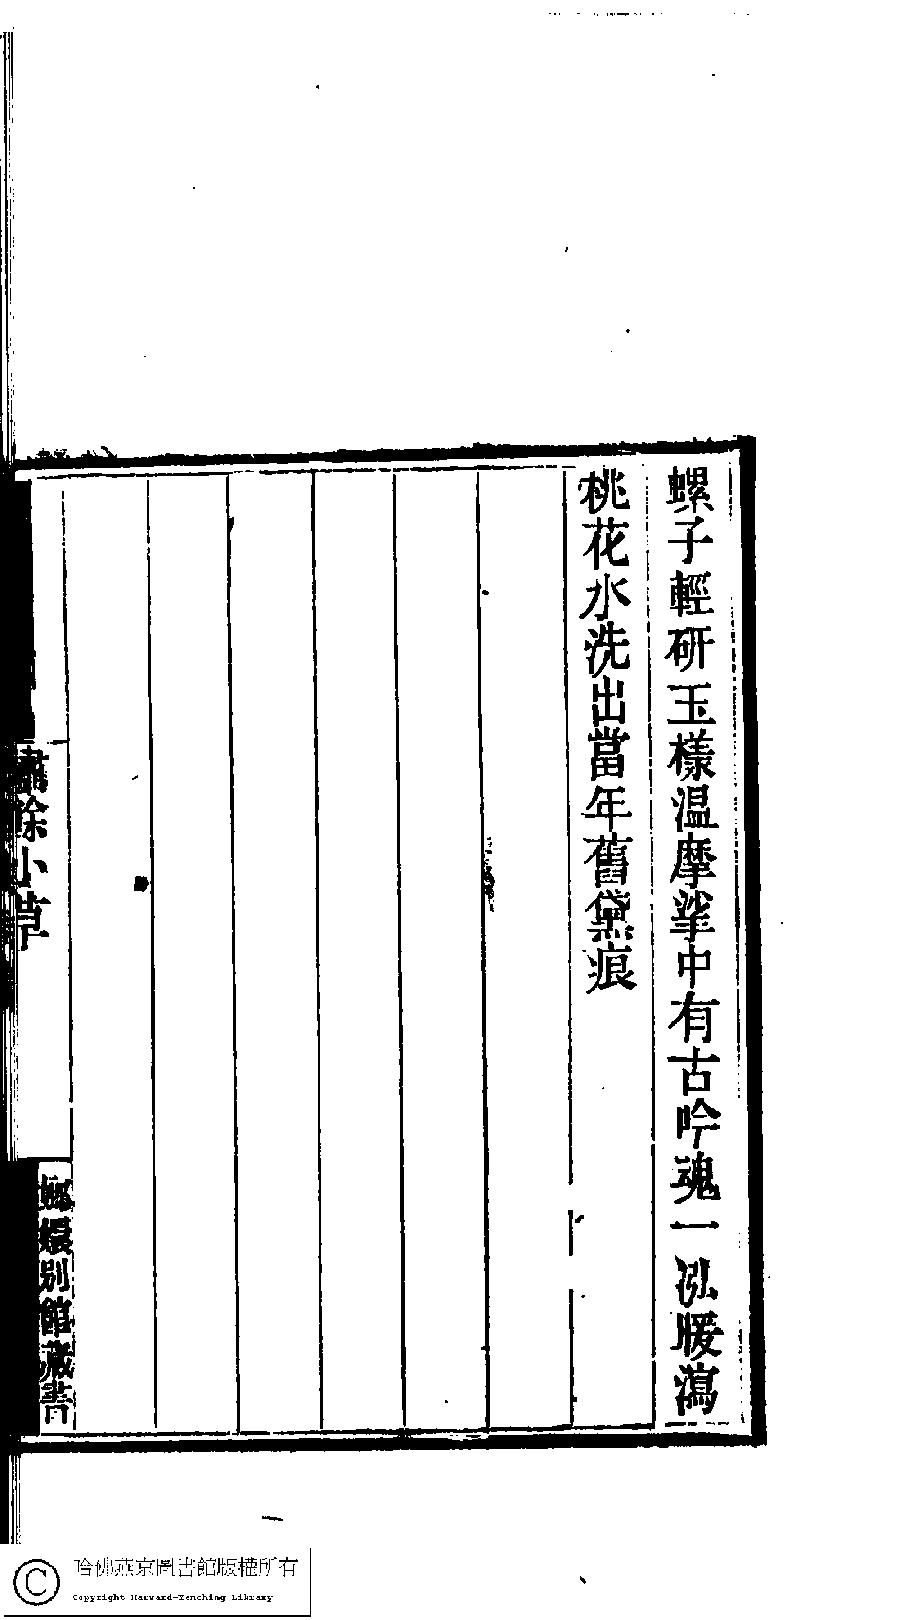 螺子輕研玉樣温摩挲中有古吟魂一泓暖瀉
桃花水洗出當年舊黛痕
繡餘小草
嫏嬛别館藏書
哈佛燕京圖書館版權所有
Copyright Harvard-Yenching Library